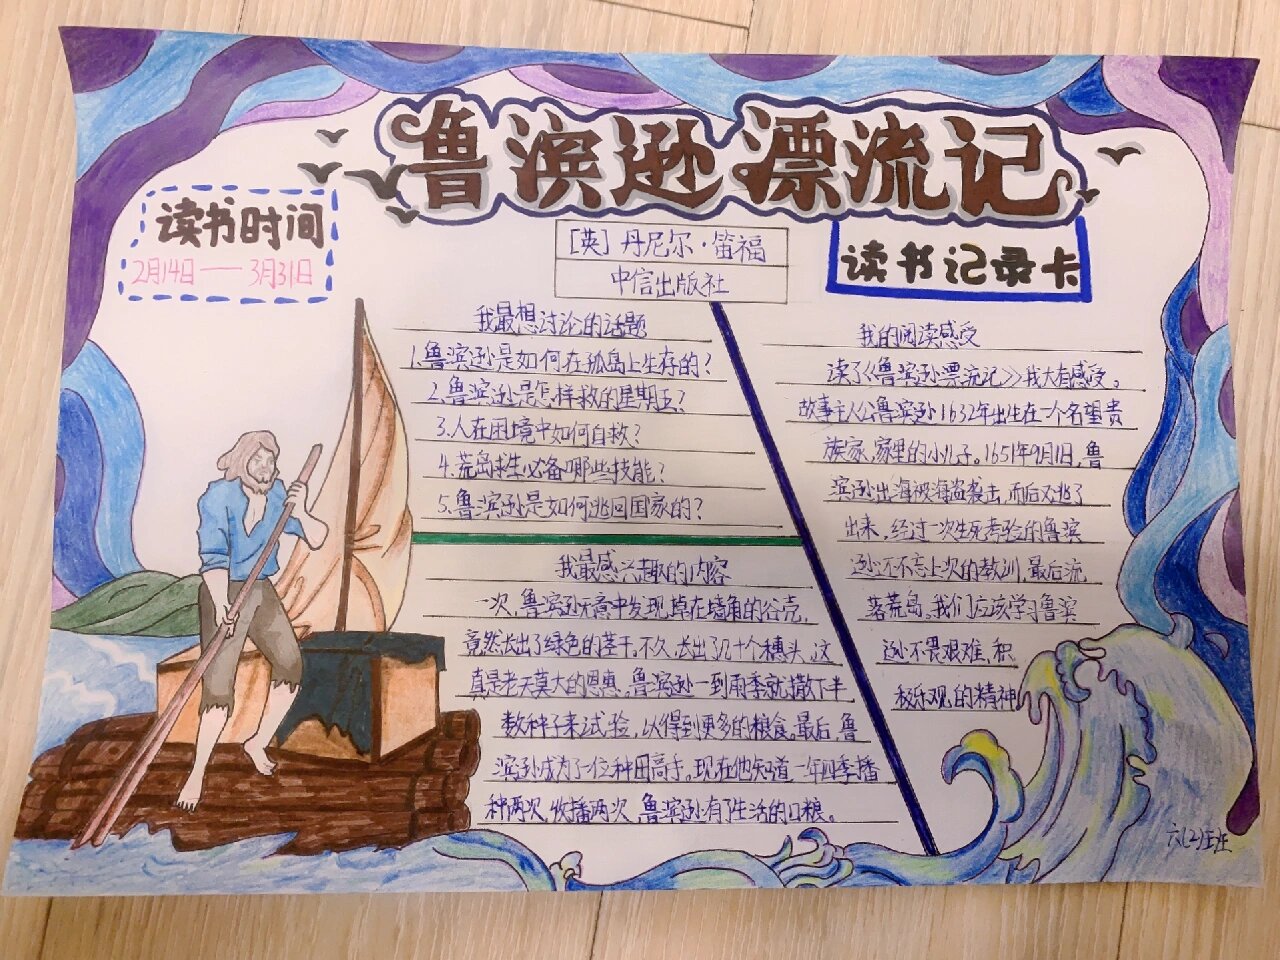 鲁滨逊漂流记
读书时间
2月14日——3月31日
[英]丹尼尔·笛福
中信出版社
读书记录卡
我最想讨论的话题
1.鲁滨逊是如何在孤岛上生存的?
2.鲁滨逊是怎样救的星期五?
3.人在困境中如何自救?
4.荒岛求生必备哪些技能?
5.鲁滨逊是如何逃回国家的?
我最感兴趣的内容
一次,鲁滨逊无意中发现,掉在墙角的谷壳,
竟然长出了绿色的茎干,不久,长出了几十个穗头,这
真是老天莫大的恩惠,鲁滨逊一到雨季就撒下半
数种子来试验,以得到更多的粮食。最后,鲁
滨逊成为了一位种田高手。现在他知道一年四季播
种两次,收播两次,鲁滨逊有了生活的口粮。
我的阅读感受
读了《鲁滨逊漂流记》我大有感受。
故事主人公鲁滨逊1632年出生在一个名望贵
族家,家里的小儿子。1651年9月1日,鲁
滨逊出海被海盗袭击,而后又逃了
出来,经过一次生死考验的鲁滨
逊还不忘上次的教训,最后流
落荒岛。我们应该学习鲁滨
逊不畏艰难,积
极乐观的精神
六(2)班